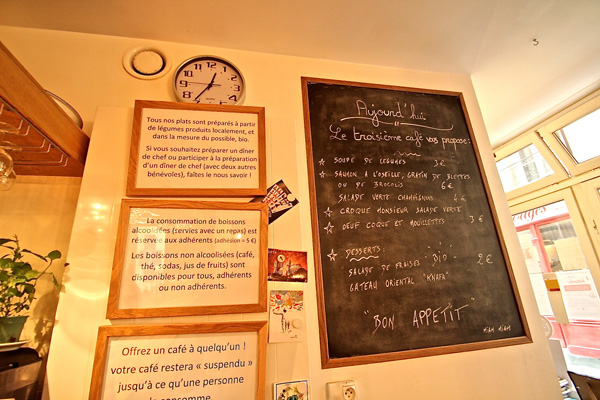 Tous nos plats sont préparés à partir
de légumes produits localement, et
dans la mesure du possible, bio.
Si vous souhaitez préparer un dîner
de chef ou participer à la préparation
d'un dîner de chef (avec deux autres
bénévoles), faîtes le nous savoir !
La consommation de boissons
alcoolisées (servies avec un repas) est
réservée aux adhérents (adhésion = 5 €)
Les boissons non alcoolisées (café,
thé, sodas, jus de fruits) sont
disponibles pour tous, adhérents
ou non adhérents.
Offrez un café à quelqu'un !
votre café restera « suspendu »
jusqu'à ce qu'une personne
le consomme
Aujourd'hui
Le troisième café vous propose :
SOUPE DE LEGUMES 3€
SAUMON A L'OSEILLE, GRATIN DE BLETTES
OU DE BROCOLIS 6€
SALADE VERTE CHAMPIGNONS 4€
CROQUE MONSIEUR SALADE VERTE
OEUF COQUE ET MOUILLETTES 3€
DESSERTS :
SALADE DE FRAISES "BIO" 2€
GATEAU ORIENTAL "KNAFA"
"BON APPETIT"
MIAM MIAM